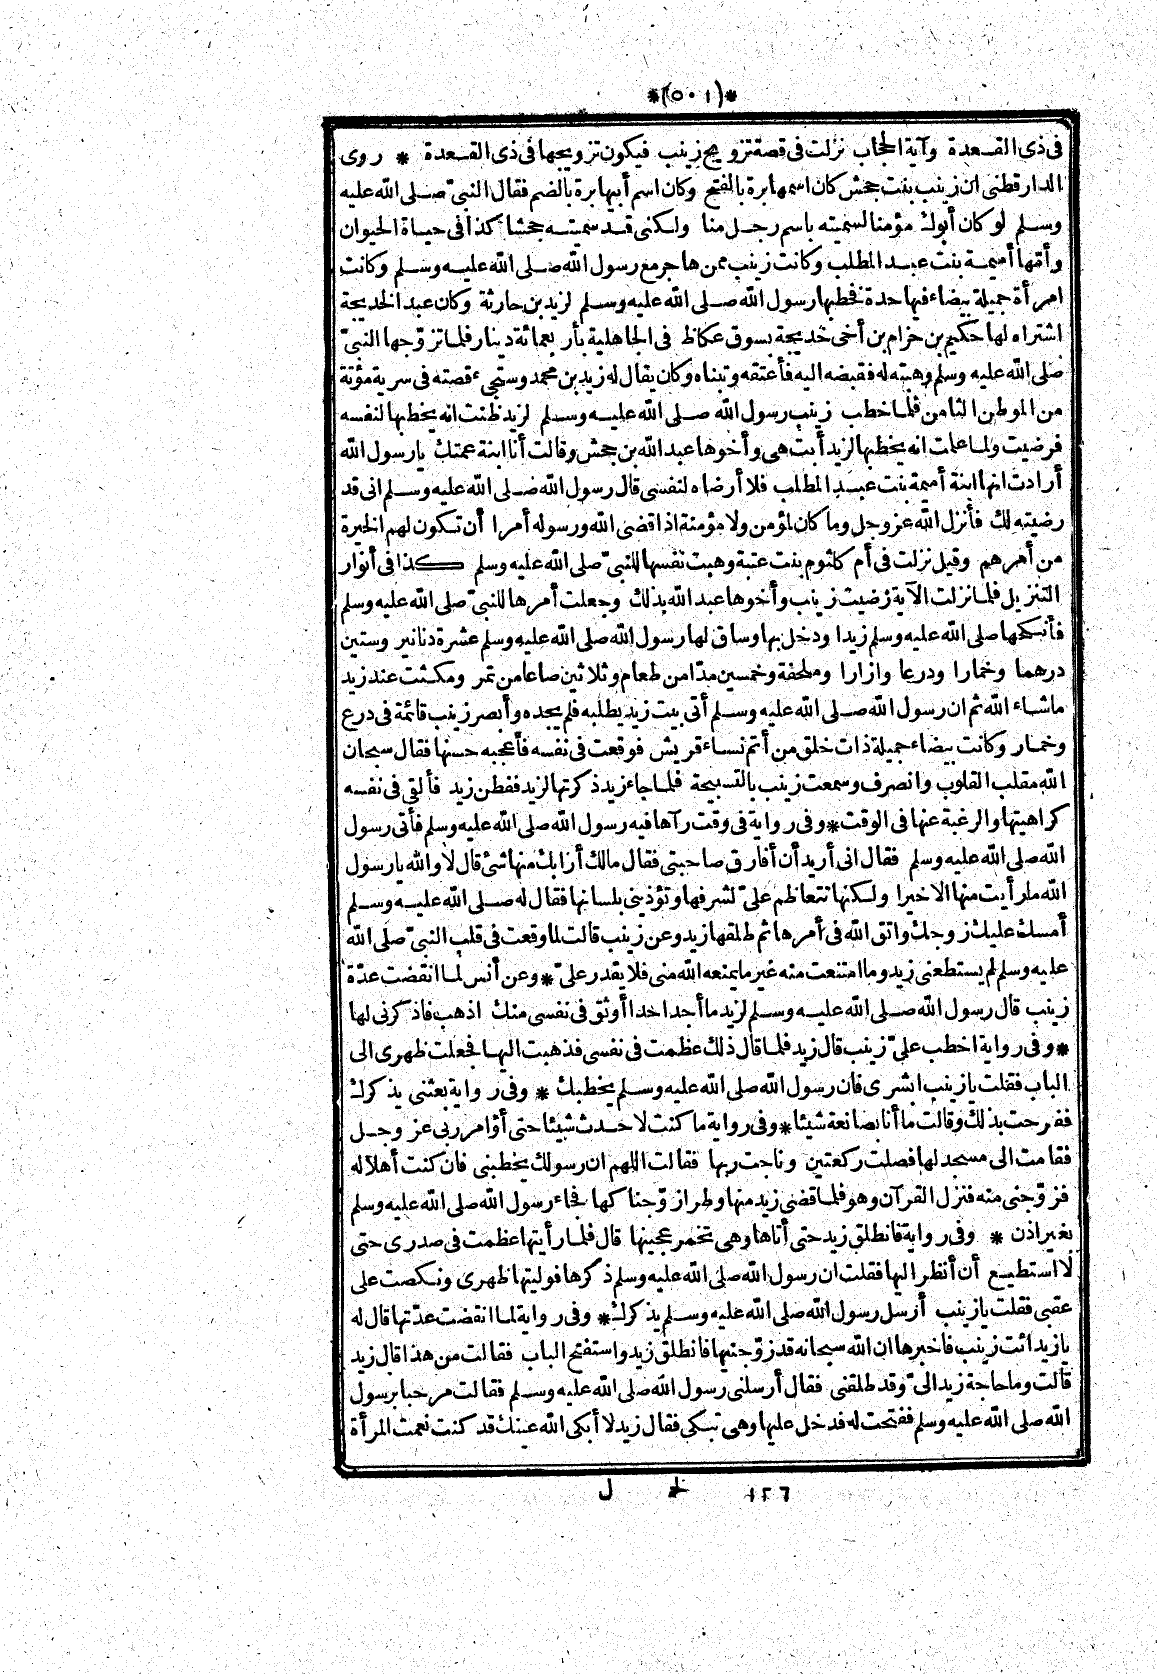 *(٥٠١)*
فى ذى القـعدة وآية الحجاب نزلت فى قصة تزويج زينب فيكون تزويجها فى ذى القـعدة * روى
الدارقطنى ان زينب بنت جحش كان اسمها برة بالفتح وكان اسم أبيها برة بالضم فقال النبىّ صلى الله عليه
وسلم لو كان أبوك مؤمنا لسميته باسم رجل منا ولكنى قد سميته جحشا كذا فى حياة الحيوان
وأمّها أميمة بنت عبد المطلب وكانت زينب ممن هاجر مع رسول الله صلى الله عليه وسلم وكانت
امرأة جميلة بيضاء فيها حدة فخطبها رسول الله صلى الله عليه وسلم لزيد بن حارثة وكان عبدا لخديجة
اشتراه لها حكيم بن حزام بن أخى خديجة بسوق عكاظ فى الجاهلية بأربعمائة دينار فلما تزوّجها النبىّ
صلى الله عليه وسلم وهبته له فقبضه اليه فأعتقه وتبناه وكان يقال له زيد بن محمد وستجىء قصته فى سرية مؤتة
من الموطن الثامن فلما خطب زينب رسول الله صلى الله عليه وسلم لزيد ظنت انه يخطبها لنفسه
فرضيت ولما علمت انه يخطبها لزيد أبت هى وأخوها عبد الله بن جحش وقالت أنا ابنة عمتك يا رسول الله
أرادت انها ابنة أميمة بنت عبد المطلب فلا أرضاه لنفسى قال رسول الله صلى الله عليه وسلم انى قد
رضيته لك فأنزل الله عز وجل وما كان لمؤمن ولا مؤمنة اذا قضى الله ورسوله أمرا أن تكون لهم الخيرة
من أمرهم وقيل نزلت فى أم كلثوم بنت عتبة وهبت نفسها للنبىّ صلى الله عليه وسلم كذا فى أنوار
التنزيل فلما نزلت الآية رضيت زينب وأخوها عبد الله بذلك وجعلت أمرها للنبىّ صلى الله عليه وسلم
فأنكحها صلى الله عليه وسلم زيدا ودخل بها وساق لها رسول الله صلى الله عليه وسلم عشرة دنانير وستين
درهما وخمارا ودرعا وازارا وملحفة وخمسين مدّا من طعام وثلاثين صاعا من تمر ومكثت عند زيد
ماشاء الله ثم ان رسول الله صلى الله عليه وسلم أتى بيت زيد يطلبه فلم يجده وأبصر زينب قائمة فى درع
وخمار وكانت بيضاء جميلة ذات خلق من أتم نساء قريش فوقعت فى نفسه فأعجبه حسنها فقال سبحان
الله مقلب القلوب وانصرف وسمعت زينب بالتسبيحة فلما جاء زيد ذكرتها لزيد ففطن زيد فألقى فى نفسه
كراهيتها والرغبة عنها فى الوقت * وفى رواية فى وقت رآها فيه رسول الله صلى الله عليه وسلم فأتى رسول
الله صلى الله عليه وسلم فقال انى أريد أن أفارق صاحبتى فقال مالك أرابك منها شئ قال لا والله يا رسول
الله ما رأيت منها الا خيرا ولكنها تتعاظم علىّ لشرفها وتؤذينى بلسانها فقال له صلى الله عليه وسلم
أمسك عليك زوجك واتق الله فى أمرها ثم طلقها زيد وعن زينب قالت لما وقعت فى قلب النبىّ صلى الله
عليه وسلم لم يستطعنى زيد وما امتنعت منه غير ما يمنعه الله منى فلا يقدر علىّ * وعن أنس لما انقضت عدّة
زينب قال رسول الله صلى الله عليه وسلم لزيد ما أجد احدا أوثق فى نفسى منك اذهب فاذكرنى لها
* وفى رواية اخطب علىّ زينب قال زيد فلما قال ذلك عظمت فى نفسى فذهبت اليها فجعلت ظهرى الى
الباب فقلت يا زينب ابشرى فان رسول الله صلى الله عليه وسلم يخطبك * وفى رواية بعثنى يذكرك
ففرحت بذلك وقالت ما أنا بصانعة شيئا * وفى رواية ما كنت لاحدث شيئا حتى أؤامر ربى عز وجل
فقامت الى مسجد لها فصلت ركعتين وناجت ربها فقالت اللهم ان رسولك يخطبنى فان كنت أهلا له
فزوّجنى منه فنزل القرآن وهو فلما قضى زيد منها وطرا زوّجناكها فجاء رسول الله صلى الله عليه وسلم
بغير اذن * وفى رواية فانطلق زيد حتى أتاها وهى تخمر عجينها قال فلما رأيتها عظمت فى صدرى حتى
لا استطيع أن أنظر اليها فقلت ان رسول الله صلى الله عليه وسلم ذكرها فوليتها ظهرى ونكصت على
عقبى فقلت يا زينب أرسل رسول الله صلى الله عليه وسلم يذكرك * وفى رواية لما انقضت عدّتها قال له
يا زيد ائت زينب فاخبرها ان الله سبحانه قد زوّجنيها فانطلق زيد واستفتح الباب فقالت من هذا قال زيد
قالت وما حاجة زيد الىّ وقد طلقنى فقال أرسلنى رسول الله صلى الله عليه وسلم فقالت مرحبا برسول
الله صلى الله عليه وسلم ففتحت له فدخل عليها وهى تبكى فقال زيد لا أبكى الله عينك قد كنت نعمت المرأة
١٢٦ خ ل